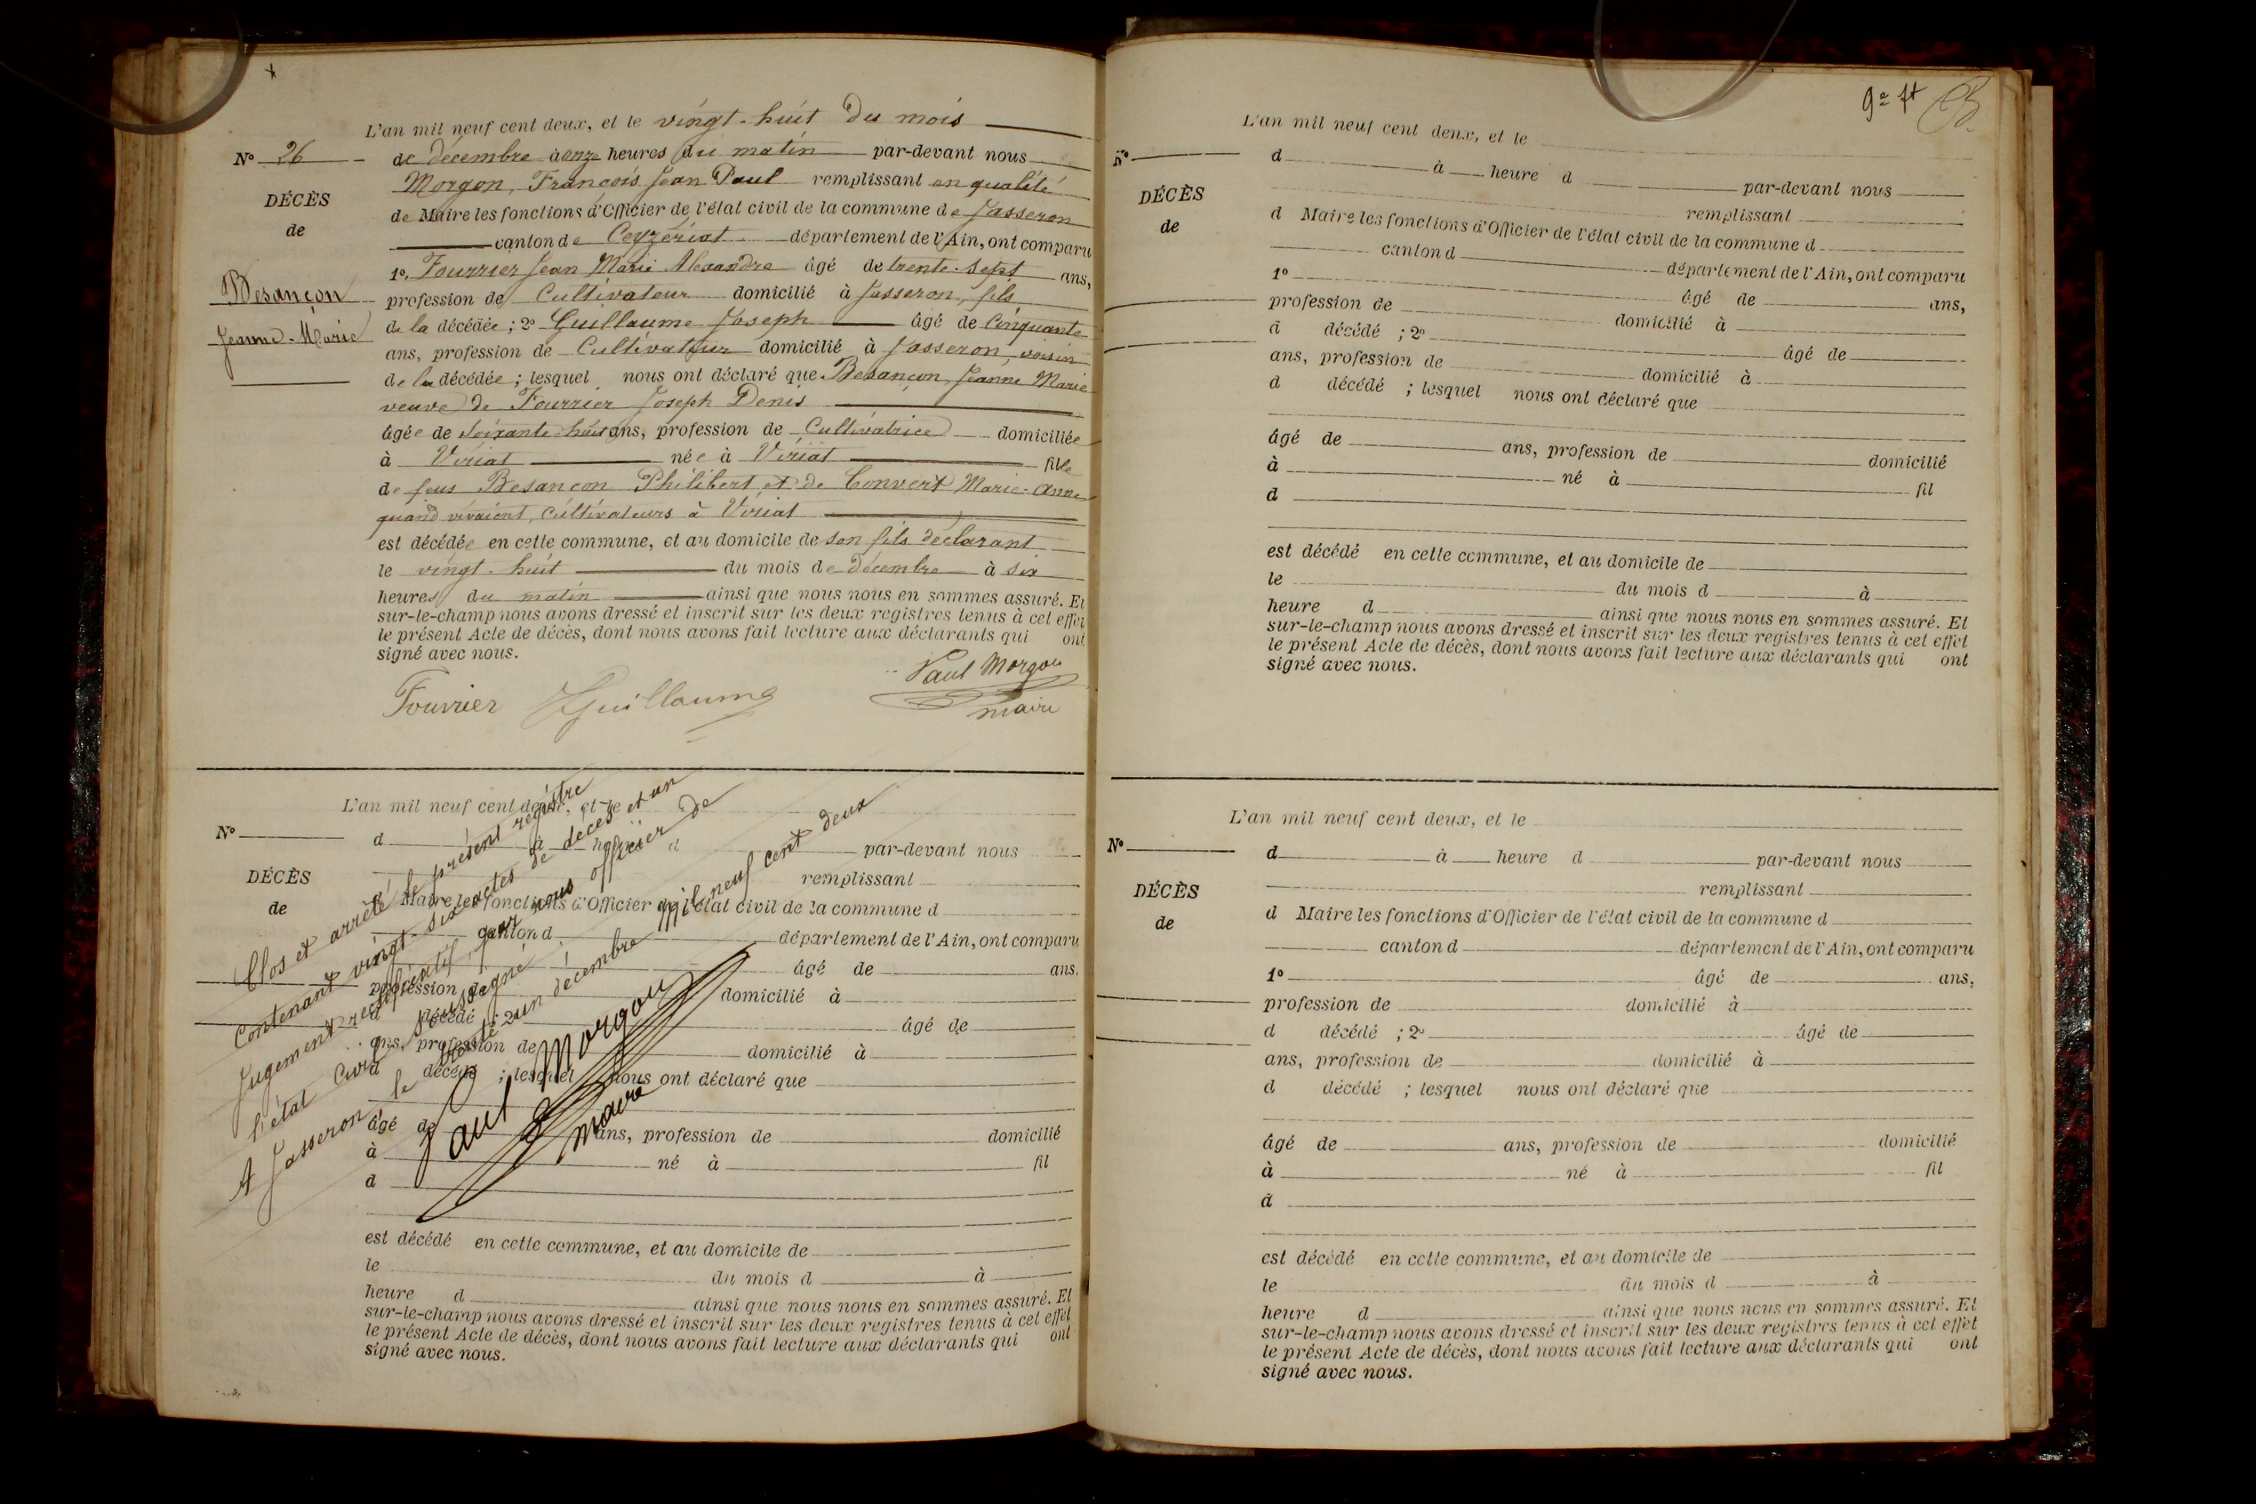 L'an mil neuf cent deux, et le vingt-huit du mois
N° 26
de décembre à onze heures du matin par-devant nous
Morgon, François Jean Paul remplissant en qualité
DÉCÈS
de Maire les fonctions d'Officier de l'état civil de la commune de Jasseron
de
canton de Ceyzériat département de l'Ain, ont comparu
1°. Fourrier Jean Marie Alexandre âgé de trente-sept ans,
Besançon
profession de Cultivateur domicilié à Jasseron, fils
Jeanne-Marie
de la décédée ; 2° Guillaume Joseph âgé de Cinquante
ans, profession de Cultivateur domicilié à Jasseron, voisin
de la décédée ; lesquel nous ont déclaré que Besançon, Jeanne Marie
veuve de Fourrier Joseph Denis
âgée de soixante-huit ans, profession de Cultivatrice domiciliée
à Viriat née à Viriat fille
de feus Besançon Philibert et de Convert Marie-Anne
quand vivaient, cultivateurs à Viriat
est décédée en cette commune, et au domicile de son fils déclarant
le vingt-huit du mois de décembre à six
heures du matin ainsi que nous nous en sommes assuré. Et
sur-le-champ nous avons dressé et inscrit sur les deux registres tenus à cet effet
le présent Acte de décès, dont nous avons fait lecture aux déclarants qui ont
signé avec nous.
Fourrier JGuillaume Paul Morgon
maire
L'an mil neuf cent deux, et le
N°
d à heure d par-devant nous
remplissant
DÉCÈS
d Maire les fonctions d'Officier de l'état civil de la commune d
de
canton d département de l'Ain, ont comparu
âgé de ans.
profession de domicilié à
d décédé ; 2° âgé de
ans, profession de domicilié à
d décédé ; lesquel nous ont déclaré que
âgé de ans, profession de domicilié
à né à fil
d
est décédé en cette commune, et au domicile de
le du mois d à
heure d ainsi que nous nous en sommes assuré. Et
sur-le-champ nous avons dressé et inscrit sur les deux registres tenus à cet effet
le présent Acte de décès, dont nous avons fait lecture aux déclarants qui ont
signé avec nous.
Clos et arrêté le présent registre
Contenant vingt-six actes de décès et un
Jugement rectificatif, par nous officier de
l'état Civil soussigné
A Jasseron le trente-un décembre mil neuf cent deux
Paul Morgon
maire
L'an mil neuf cent deux, et le
N°
d à heure d par-devant nous
remplissant
DÉCÈS
d Maire les fonctions d'Officier de l'état civil de la commune d
de
canton d département de l'Ain, ont comparu
1° âgé de ans,
profession de domicilié à
d décédé ; 2° âgé de
ans, profession de domicilié à
d décédé ; lesquel nous ont déclaré que
âgé de ans, profession de domicilié
à né à fil
d
est décédé en cette commune, et au domicile de
le du mois d à
heure d ainsi que nous nous en sommes assuré. Et
sur-le-champ nous avons dressé et inscrit sur les deux registres tenus à cet effet
le présent Acte de décès, dont nous avons fait lecture aux déclarants qui ont
signé avec nous.
L'an mil neuf cent deux, et le
N°
d à heure d par-devant nous
remplissant
DÉCÈS
d Maire les fonctions d'Officier de l'état civil de la commune d
de
canton d département de l'Ain, ont comparu
1° âgé de ans,
profession de domicilié à
d décédé ; 2° âgé de
ans, profession de domicilié à
d décédé ; lesquel nous ont déclaré que
âgé de ans, profession de domicilié
à né à fil
d
est décédé en cette commune, et au domicile de
le du mois d à
heure d ainsi que nous nous en sommes assuré. Et
sur-le-champ nous avons dressé et inscrit sur les deux registres tenus à cet effet
le présent Acte de décès, dont nous avons fait lecture aux déclarants qui ont
signé avec nous.